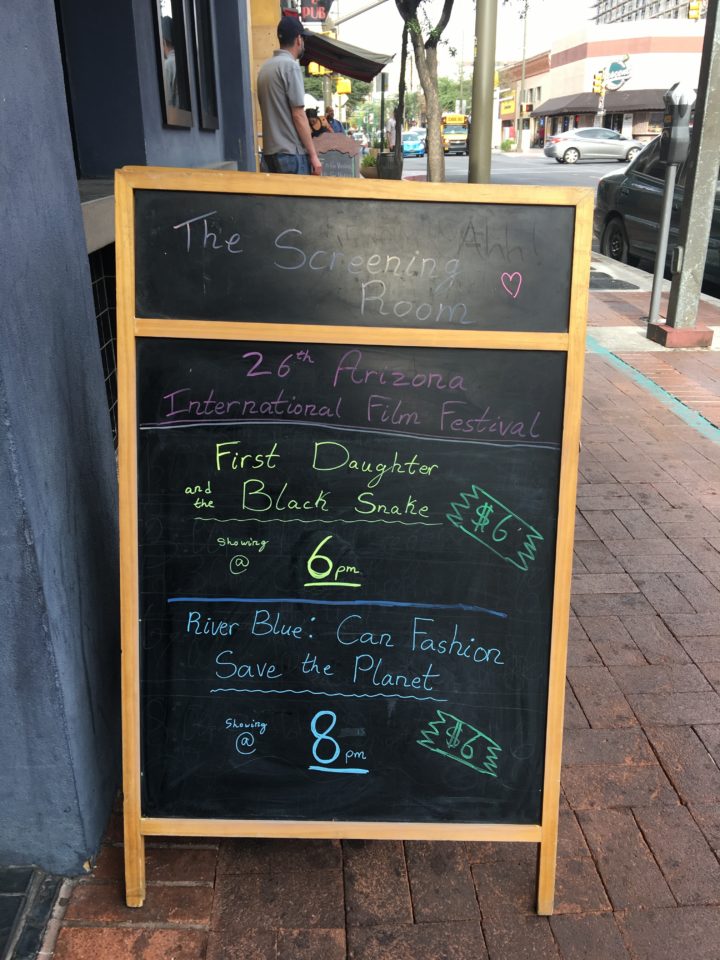 PUB
The Screening
Room
Ahh!
26th Arizona
International Film Festival
First Daughter
and the Black Snake
$6
Showing
@
6pm
River Blue: Can Fashion
Save the Planet
Showing
@
8pm
$6